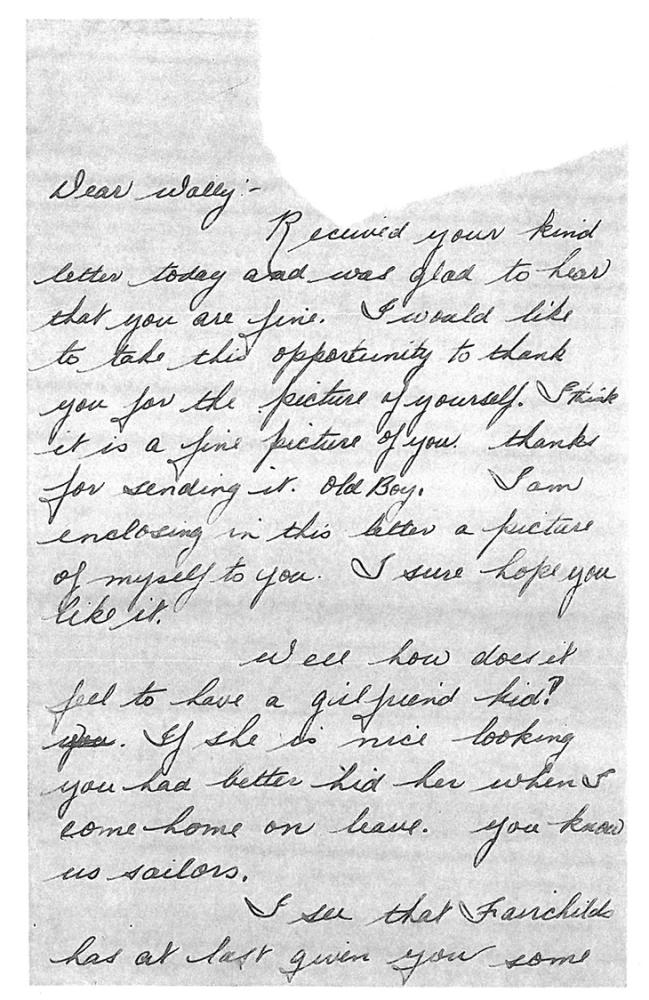 Dear Wally:-
Received your kind
letter today and was glad to hear
that you are fine. I would like
to take this opportunity to thank
you for the picture of yourself. I think
it is a fine picture of you. thanks
for sending it. Old Boy. I am
enclosing in this letter a picture
of myself to you. I sure hope you
like it.
Well how does it
feel to have a girlfriend kid?
you. If she is nice looking
you had better hid her when I
come home on leave. you know
us sailors.
I see that Fairchilds
has at last given you some